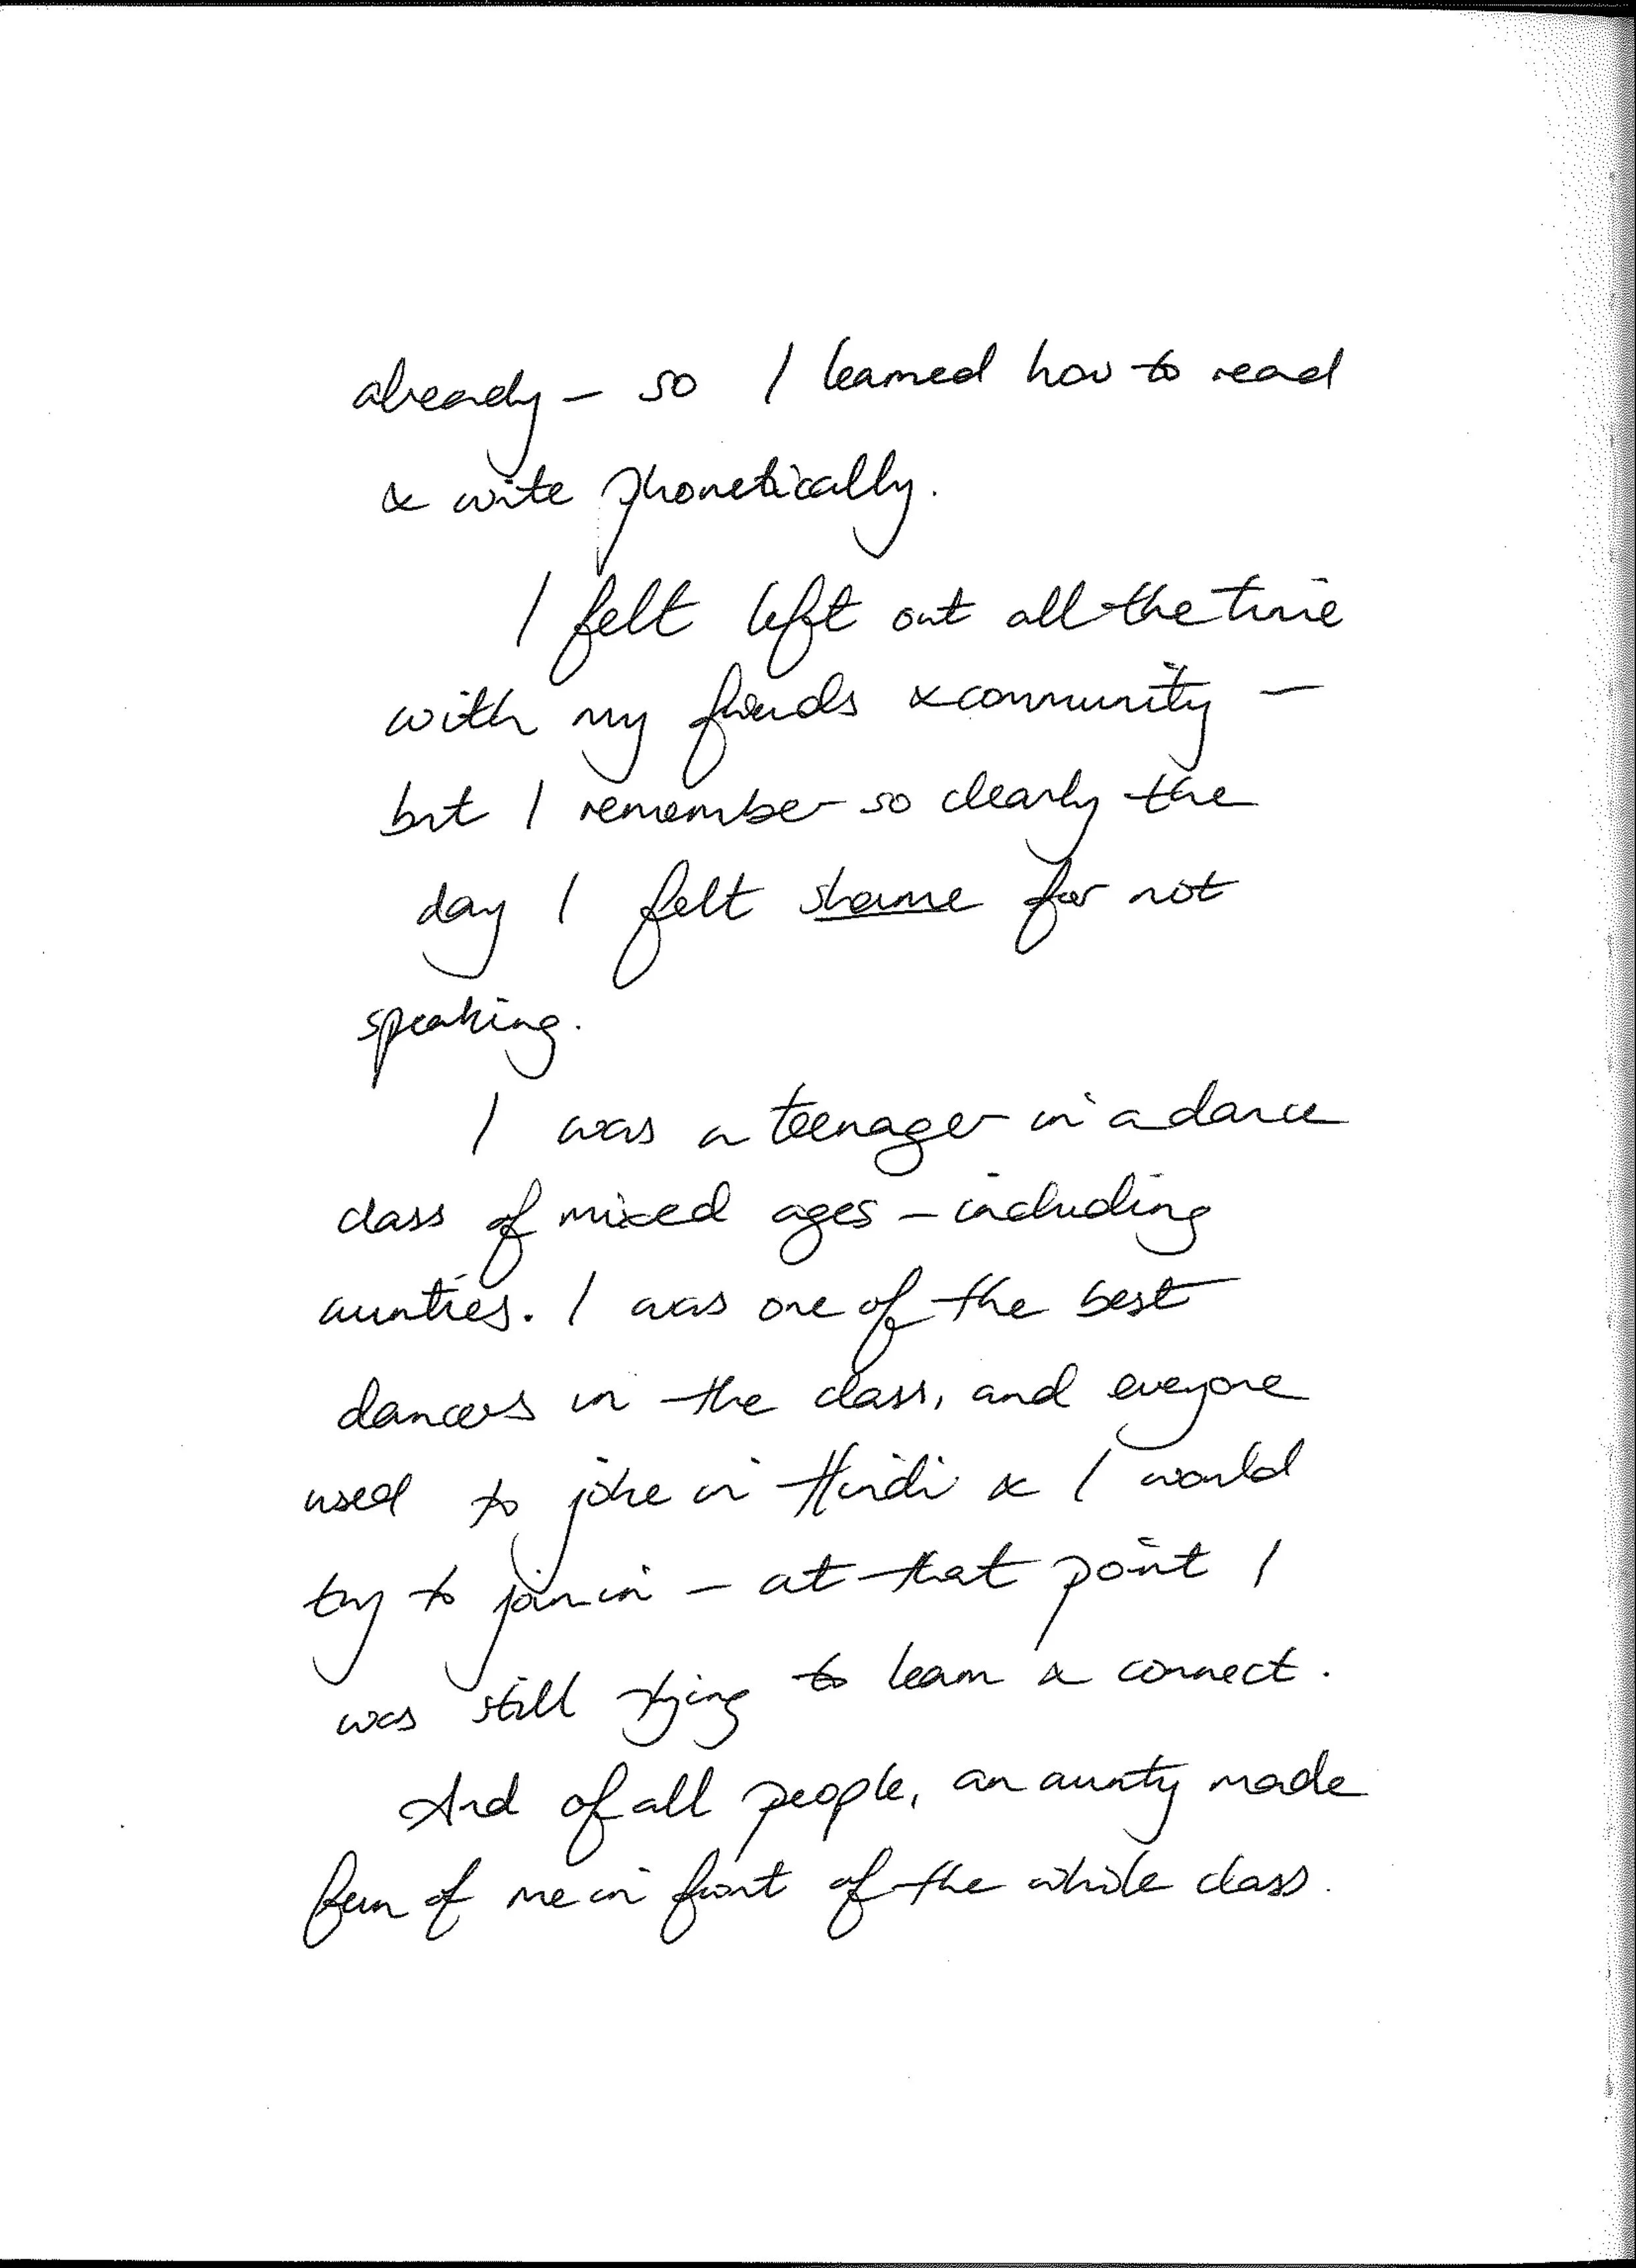 already – so I learned how to read
& write phonetically.
I felt left out all the time
with my friends & community –
but I remember so clearly the
day I felt shame for not
speaking.
I was a teenager in a dance
class of mixed ages – including
aunties. I was one of the best
dancers in the class, and everyone
used to joke in Hindi & I would
try to join in – at that point I
was still trying to learn & connect.
And of all people, an aunty made
fun of me in front of the whole class.